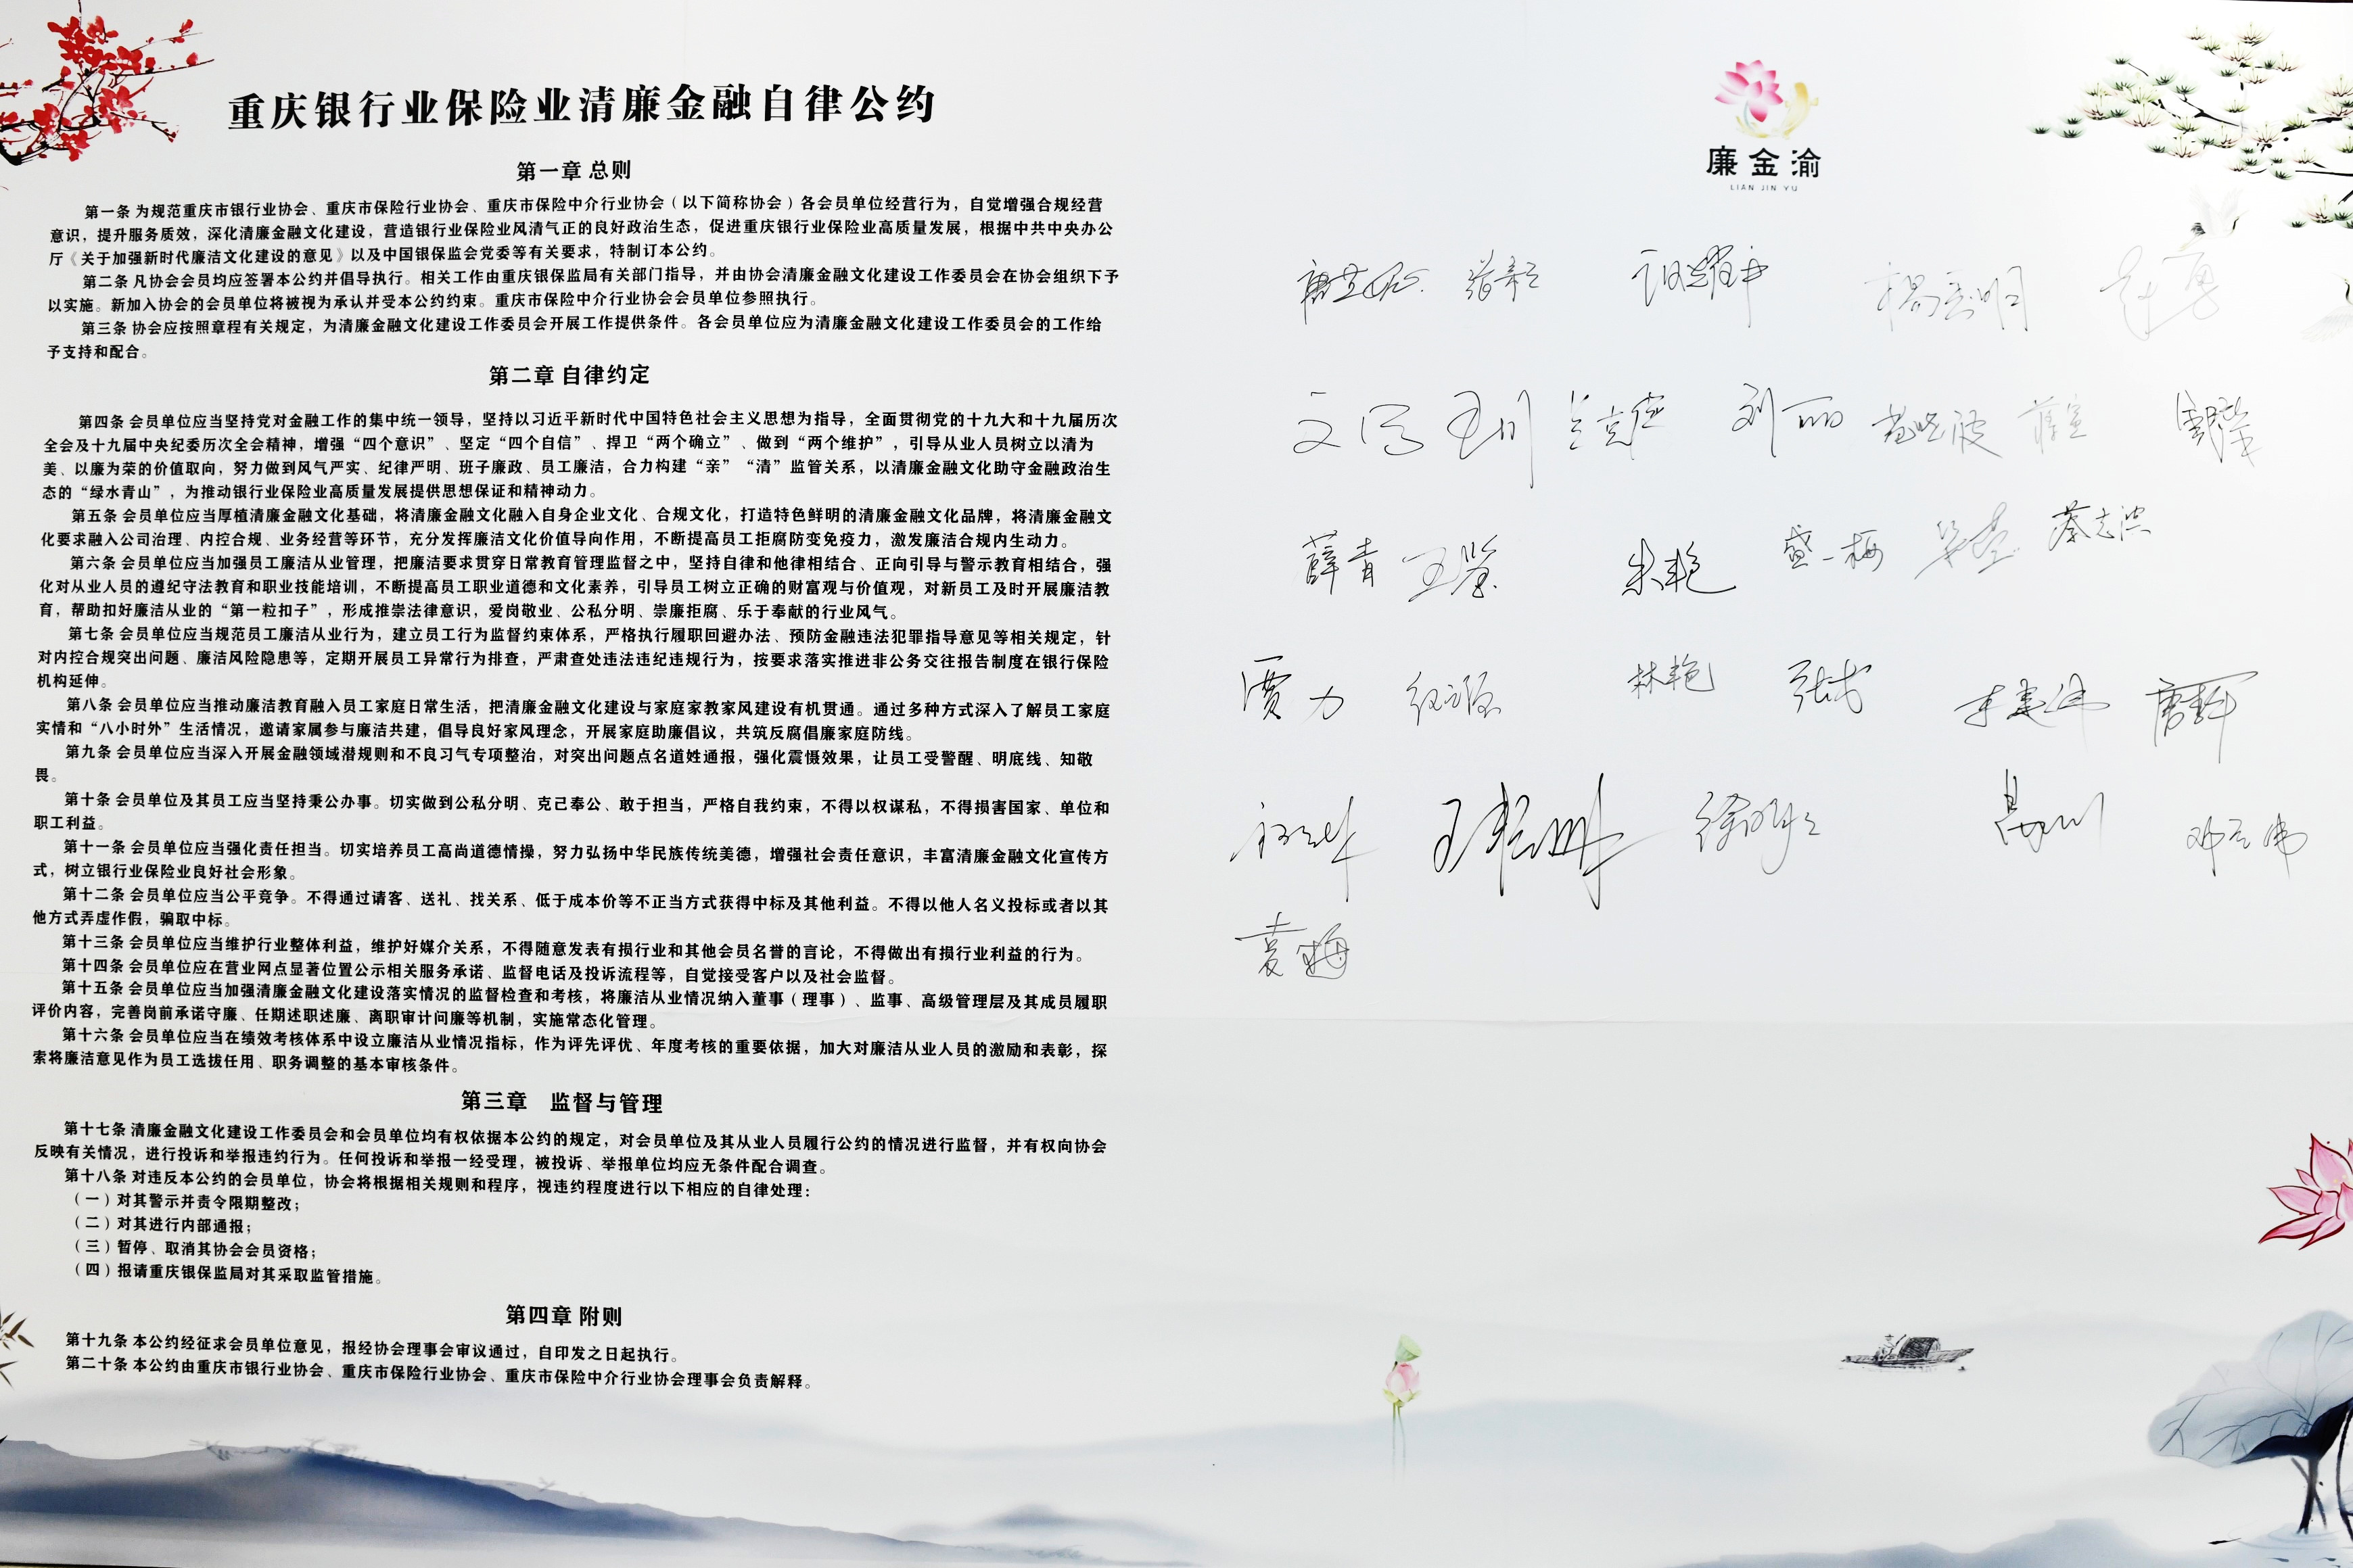 重庆银行业保险业清廉金融自律公约
第一章 总则
第一条 为规范重庆市银行业协会、重庆市保险行业协会、重庆市保险中介行业协会（以下简称协会）各会员单位经营行为，自觉增强合规经营
意识，提升服务质效，深化清廉金融文化建设，营造银行业保险业风清气正的良好政治生态，促进重庆银行业保险业高质量发展，根据中共中央办公
厅《关于加强新时代廉洁文化建设的意见》以及中国银保监会党委等有关要求，特制订本公约。
第二条 凡协会会员均应签署本公约并倡导执行。相关工作由重庆银保监局有关部门指导，并由协会清廉金融文化建设工作委员会在协会组织下予
以实施。新加入协会的会员单位将被视为承认并受本公约约束。重庆市保险中介行业协会会员单位参照执行。
第三条 协会应按照章程有关规定，为清廉金融文化建设工作委员会开展工作提供条件。各会员单位应为清廉金融文化建设工作委员会的工作给
予支持和配合。
第二章 自律约定
第四条 会员单位应当坚持党对金融工作的集中统一领导，坚持以习近平新时代中国特色社会主义思想为指导，全面贯彻党的十九大和十九届历次
全会及十九届中央纪委历次全会精神，增强“四个意识”、坚定“四个自信”、捍卫“两个确立”、做到“两个维护”，引导从业人员树立以清为
美、以廉为荣的价值取向，努力做到风气严实、纪律严明、班子廉政、员工廉洁，合力构建“亲”“清”监管关系，以清廉金融文化助守金融政治生
态的“绿水青山”，为推动银行业保险业高质量发展提供思想保证和精神动力。
第五条 会员单位应当厚植清廉金融文化基础，将清廉金融文化融入自身企业文化、合规文化，打造特色鲜明的清廉金融文化品牌，将清廉金融文
化要求融入公司治理、内控合规、业务经营等环节，充分发挥廉洁文化价值导向作用，不断提高员工拒腐防变免疫力，激发廉洁合规内生动力。
第六条 会员单位应当加强员工廉洁从业管理，把廉洁要求贯穿日常教育管理监督之中，坚持自律和他律相结合、正向引导与警示教育相结合，强
化对从业人员的遵纪守法教育和职业技能培训，不断提高员工职业道德和文化素养，引导员工树立正确的财富观与价值观，对新员工及时开展廉洁教
育，帮助扣好廉洁从业的“第一粒扣子”，形成推崇法律意识，爱岗敬业、公私分明、崇廉拒腐、乐于奉献的行业风气。
第七条 会员单位应当规范员工廉洁从业行为，建立员工行为监督约束体系，严格执行履职回避办法、预防金融违法犯罪指导意见等相关规定，针
对内控合规突出问题、廉洁风险隐患等，定期开展员工异常行为排查，严肃查处违法违纪违规行为，按要求落实推进非公务交往报告制度在银行保险
机构延伸。
第八条 会员单位应当推动廉洁教育融入员工家庭日常生活，把清廉金融文化建设与家庭家教家风建设有机贯通。通过多种方式深入了解员工家庭
实情和“八小时外”生活情况，邀请家属参与廉洁共建，倡导良好家风理念，开展家庭助廉倡议，共筑反腐倡廉家庭防线。
第九条 会员单位应当深入开展金融领域潜规则和不良习气专项整治，对突出问题点名道姓通报，强化震慑效果，让员工受警醒、明底线、知敬
畏。
第十条 会员单位及其员工应当坚持秉公办事。切实做到公私分明、克己奉公、敢于担当，严格自我约束，不得以权谋私，不得损害国家、单位和
职工利益。
第十一条 会员单位应当强化责任担当。切实培养员工高尚道德情操，努力弘扬中华民族传统美德，增强社会责任意识，丰富清廉金融文化宣传方
式，树立银行业保险业良好社会形象。
第十二条 会员单位应当公平竞争。不得通过请客、送礼、找关系、低于成本价等不正当方式获得中标及其他利益。不得以他人名义投标或者以其
他方式弄虚作假，骗取中标。
第十三条 会员单位应当维护行业整体利益，维护好媒介关系，不得随意发表有损行业和其他会员名誉的言论，不得做出有损行业利益的行为。
第十四条 会员单位应在营业网点显著位置公示相关服务承诺、监督电话及投诉流程等，自觉接受客户以及社会监督。
第十五条 会员单位应当加强清廉金融文化建设落实情况的监督检查和考核，将廉洁从业情况纳入董事（理事）、监事、高级管理层及其成员履职
评价内容，完善岗前承诺守廉、任期述职述廉、离职审计问廉等机制，实施常态化管理。
第十六条 会员单位应当在绩效考核体系中设立廉洁从业情况指标，作为评先评优、年度考核的重要依据，加大对廉洁从业人员的激励和表彰，探
索将廉洁意见作为员工选拔任用、职务调整的基本审核条件。
第三章 监督与管理
第十七条 清廉金融文化建设工作委员会和会员单位均有权依据本公约的规定，对会员单位及其从业人员履行公约的情况进行监督，并有权向协会
反映有关情况，进行投诉和举报违约行为。任何投诉和举报一经受理，被投诉、举报单位均应无条件配合调查。
第十八条 对违反本公约的会员单位，协会将根据相关规则和程序，视违约程度进行以下相应的自律处理：
（一）对其警示并责令限期整改；
（二）对其进行内部通报；
（三）暂停、取消其协会会员资格；
（四）报请重庆银保监局对其采取监管措施。
第四章 附则
第十九条 本公约经征求会员单位意见，报经协会理事会审议通过，自印发之日起执行。
第二十条 本公约由重庆市银行业协会、重庆市保险行业协会、重庆市保险中介行业协会理事会负责解释。
廉金渝
LIAN JIN YU
刘丽
薛青 朱艳 盛一梅 蔡志洪
贾力 林艳 唐辉
袁梅